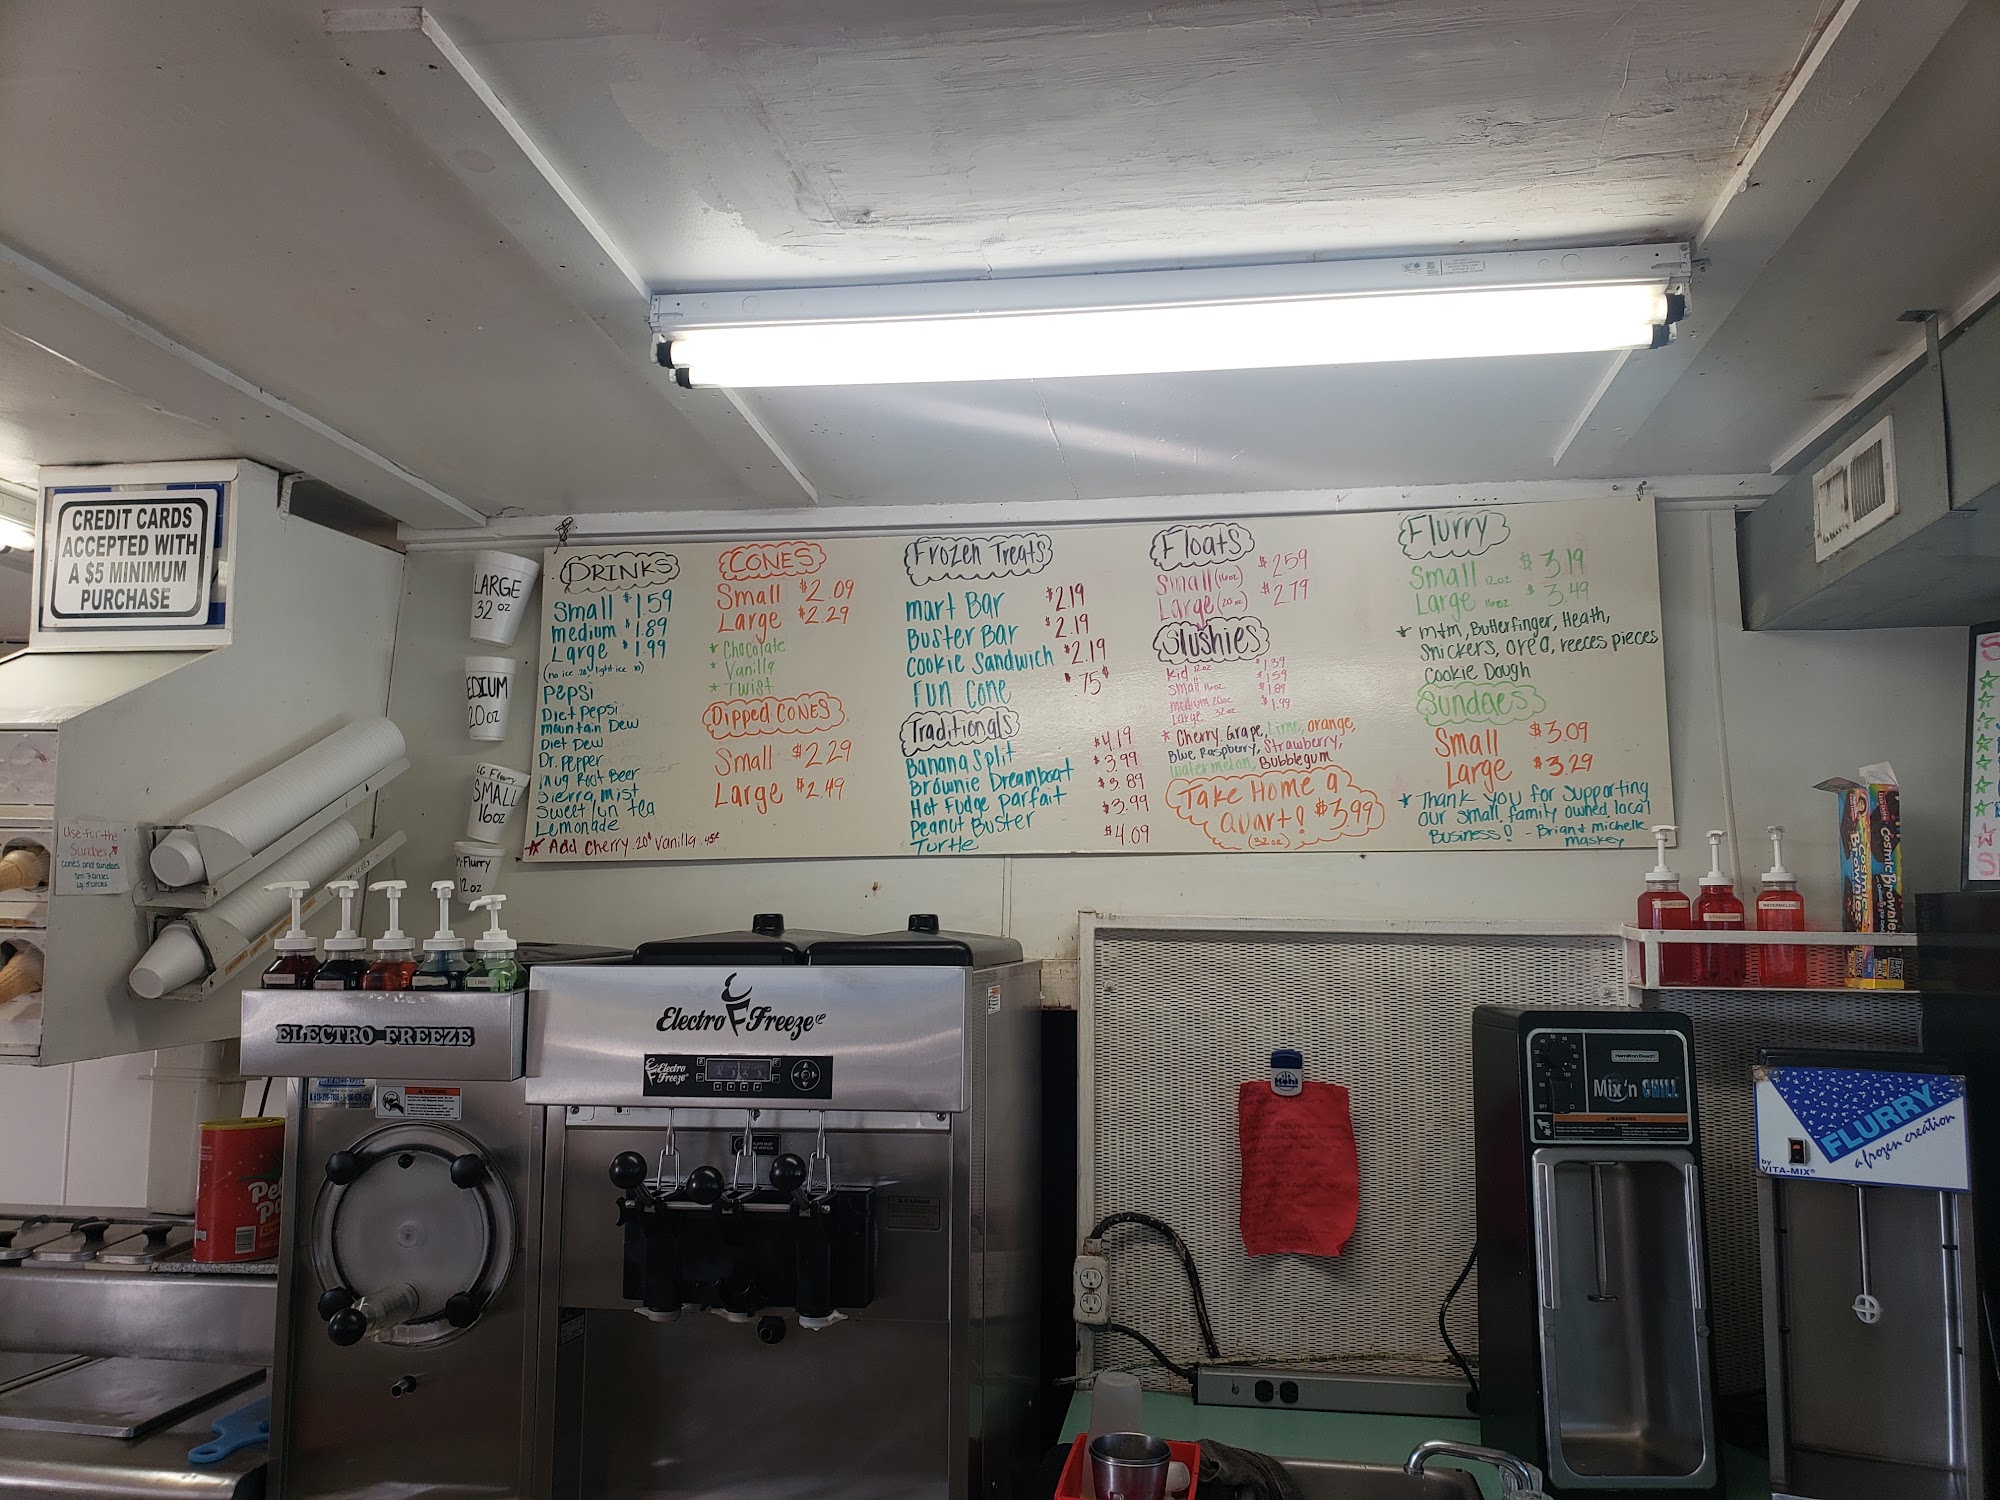 CREDIT CARDS
ACCEPTED WITH
A $5 MINIMUM
PURCHASE
LARGE
32 oz
EDIUM
20oz
LG Flurry
SMALL
16oz
Flurry
12 oz
Use for the
Sundaes
cones and sundaes
Sm: 3 circles
Lg: 5 circles
DRINKS
Small $1.59
medium $1.89
Large $1.99
Pepsi
Diet Pepsi
mountain Dew
Diet Dew
Dr. Pepper
mug Root Beer
Sierra mist
Sweet/un tea
Lemonade
* Add cherry .20¢ Vanilla .45¢
CONES
Small $2.09
Large $2.29
* Chocolate
* Vanilla
* Twist
Dipped CONES
Small $2.29
Large $2.49
Frozen Treats
mart Bar $2.19
Buster Bar $2.19
Cookie Sandwich $2.19
Fun Cone .75¢
Traditionals
Banana Split $4.19
Brownie Dreamboat $3.99
Hot Fudge Parfait $3.89
Peanut Buster $3.99
Turtle $4.09
Floats
Small (16oz) $2.59
Large (20oz) $2.79
Slushies
Kid 12oz $1.39
Small 16oz $1.59
medium 20oz $1.89
Large 32oz $1.99
* Cherry, Grape, Lime, orange,
Blue Raspberry, Strawberry,
watermelon, Bubblegum
Take Home a
Quart! $3.99
(32oz)
Flurry
Small 12oz $3.19
Large 16oz. $3.49
* m+m, Butterfinger, Heath,
Snickers, oreo, reeces pieces
Cookie Dough
Sundaes
Small $3.09
Large $3.29
* Thank you for supporting
our small, family owned, local
Business! - Brian + michelle
maskey
ELECTRO FREEZE
Electro Freeze
Electro
Freeze
WARNING
CHERRY
LIME
STRAWBERRY
WATERMELON
Cosmic Brownies
Cosmic Brownies
Hamilton Beach
Mix'n CHILL
WARNING
FLURRY
a frozen creation
by
VITA-MIX